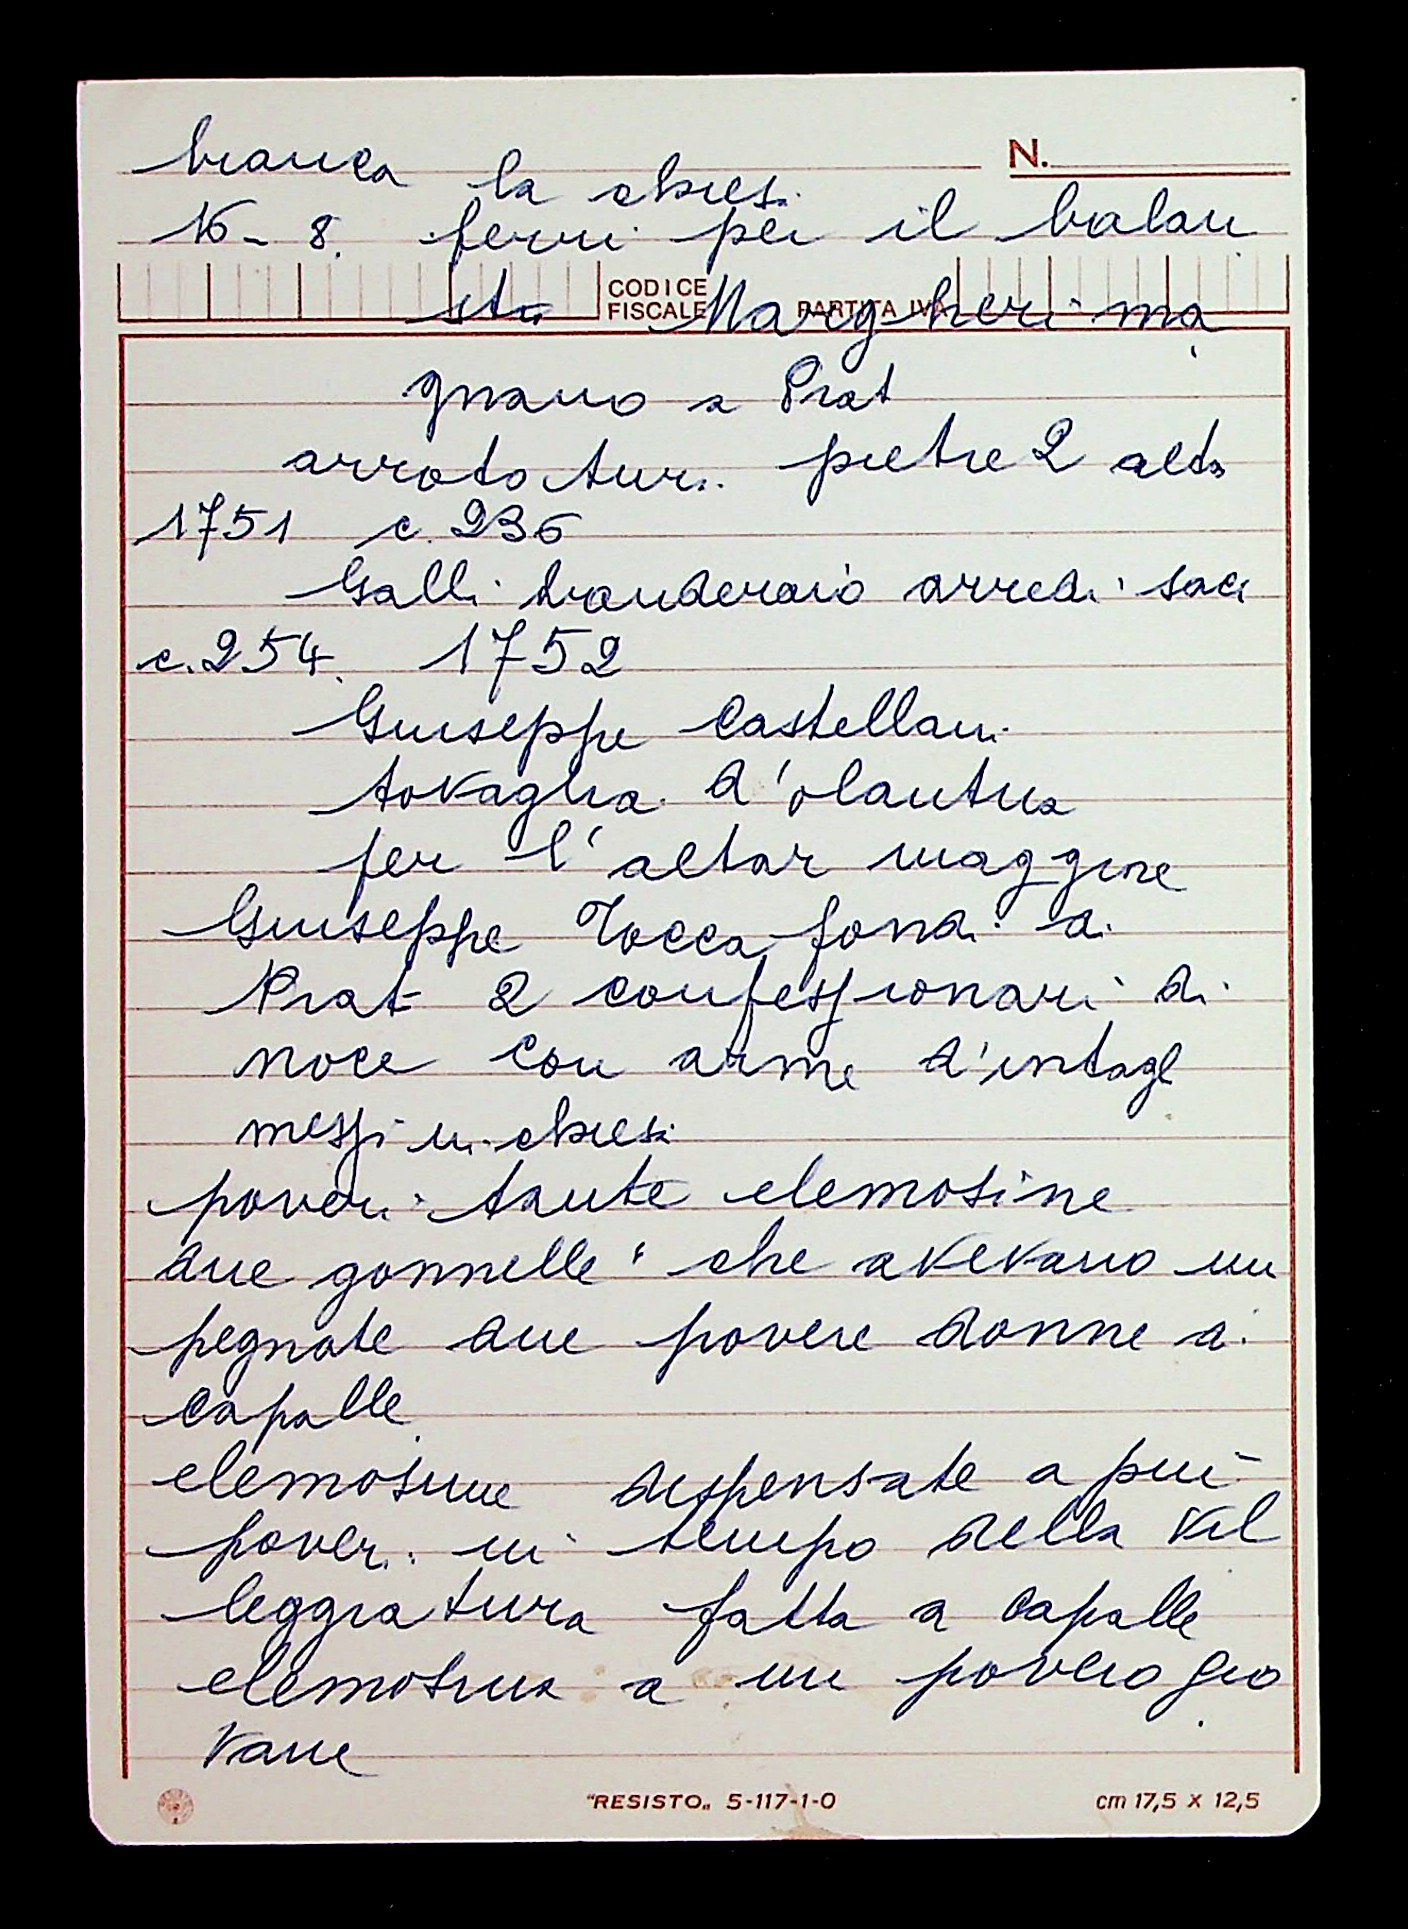 bianca la chies.
N.
16- 8. ferri per il balau
CODICE FISCALE PARTITA IVA
sta Margheri ma
gnano a Prat
arroto tur.. pietre 2 alta
1751 c. 236
Galli banderaio arredi saci
c. 254. 1752
Giuseppe Castellani
tovaglia d'olantina
per l'altar maggiore
Giuseppe Toccafondi di
Prat 2 confessionari di
noce con arme d'intagl
messi in chiesi
poveri tante elemosine
due gonnelle che avevano im
pegnate due povere donne a.
Capalle
elemosine dispensate a più
poveri in tempo della vil
leggiatura fatta a Capalle
elemosina a un povero gio
vane
"RESISTO" 5-117-1-0 cm 17,5 x 12,5